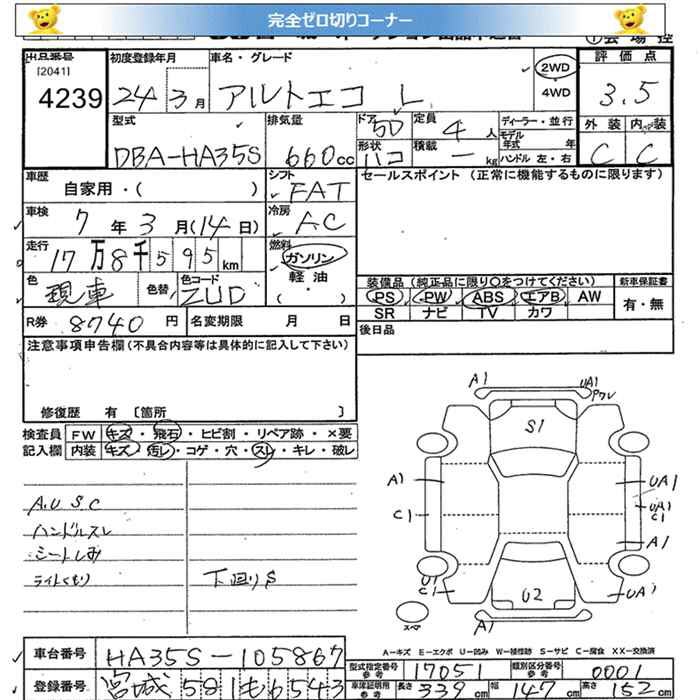 完全ゼロ切りコーナー
出品番号 初度登録年月 車名・グレード 評価点
[2041]
4239 24年 3月 アルトエコ L 2WD 4WD 3.5
型式 排気量 ドア 定員 ディーラー・並行 外装 内装
DBA-HA35S 660cc 5D 4人 モデル年式 年 C C
形状 ハコ 積載 ー kg ハンドル 左・右
車歴 シフト セールスポイント (正常に機能するものに限ります)
自家用・( ) FAT
車検 7年 3月(14日) 冷房 AC
走行 17万8千595km 燃料 ガソリン
軽油
( ・ )
色 現車 色替 色コード ZUD
装備品 (純正品に限り〇をつけてください) 新車保証書
PS PW ABS エアB AW 有・無
SR ナビ TV カワ
R券 8740円 名変期限 月 日 後日品
注意事項申告欄 (不具合内容等は具体的に記入して下さい)
修復歴 有 〔箇所 〕
検査員 FW キズ・飛石・ヒビ割・リペア跡・×要
記入欄 内装 キズ・汚レ・コゲ・穴・スレ・キレ・破レ
A.U S C
ハンドルスレ
シートしみ
ライトくもり 下回りS
A1 UA1
S1
A1 UA1
C1 UA1
C1
A1
U1
C1 U2 UA1
スペア A1
A-キズ E-エクボ U-凹み W-補修跡 S-サビ C-腐食 XX-交換済
車台番号 HA35S-105867
型式指定番号 参考 17051 類別区分番号 参考 0001
登録番号 宮城581も6543
車庫証明用 参考 長さ 339cm 幅 147cm 高さ 152cm